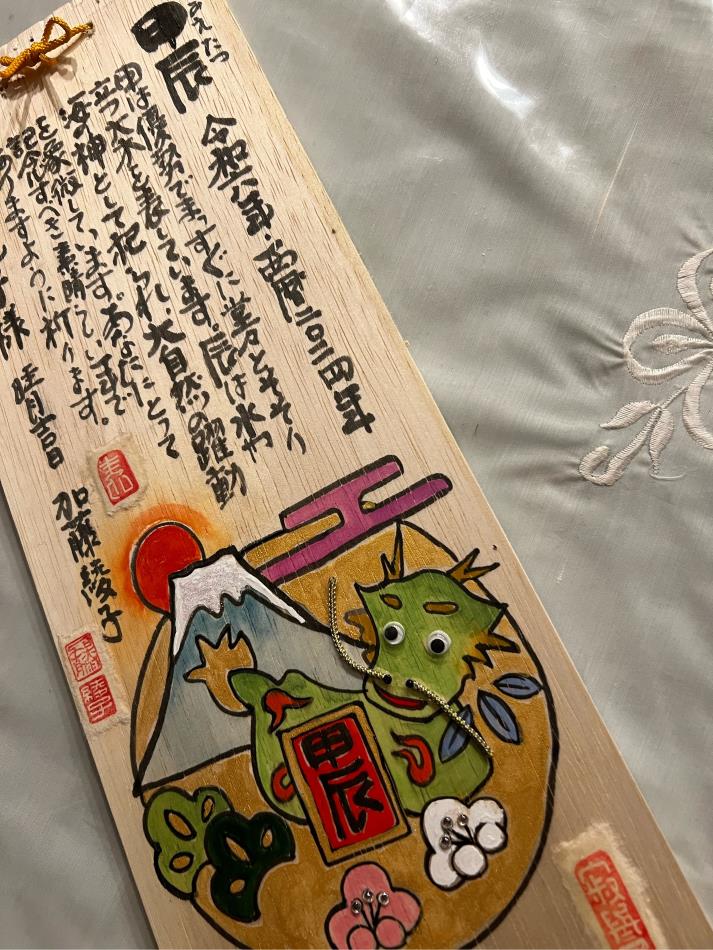 甲辰
令和六年・西暦二〇二四年
甲は優勢でまっすぐに堂々とそそり
立つ大木を表しています。辰は水や
海の神として祀られ大自然の躍動
を象徴しています。あなたにとって
記念すべき素晴らしい年で
ありますように祈ります。
子様 睦月吉日
加藤綾子
甲辰